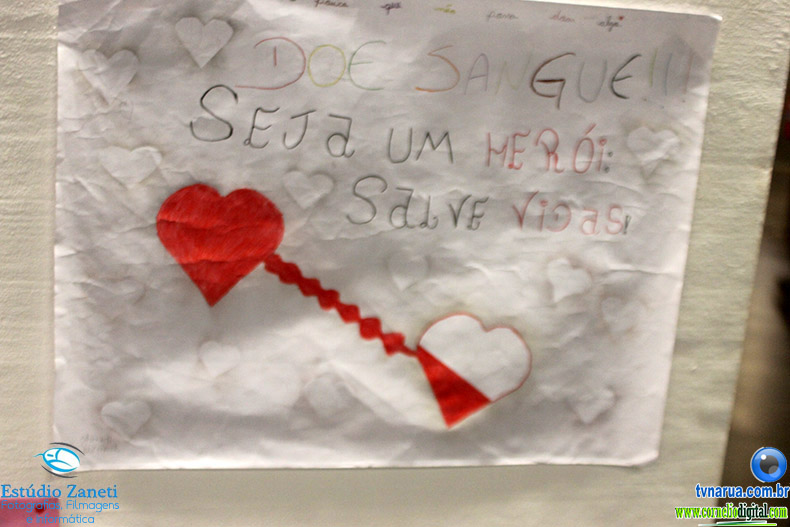 DOE SANGUE!!!
SEJa UM HERÓI:
SaLVE VIDas!
Estúdio Zaneti
Fotografias, Filmagens
e Informática
tvnarua.com.br
www.corneliodigital.com